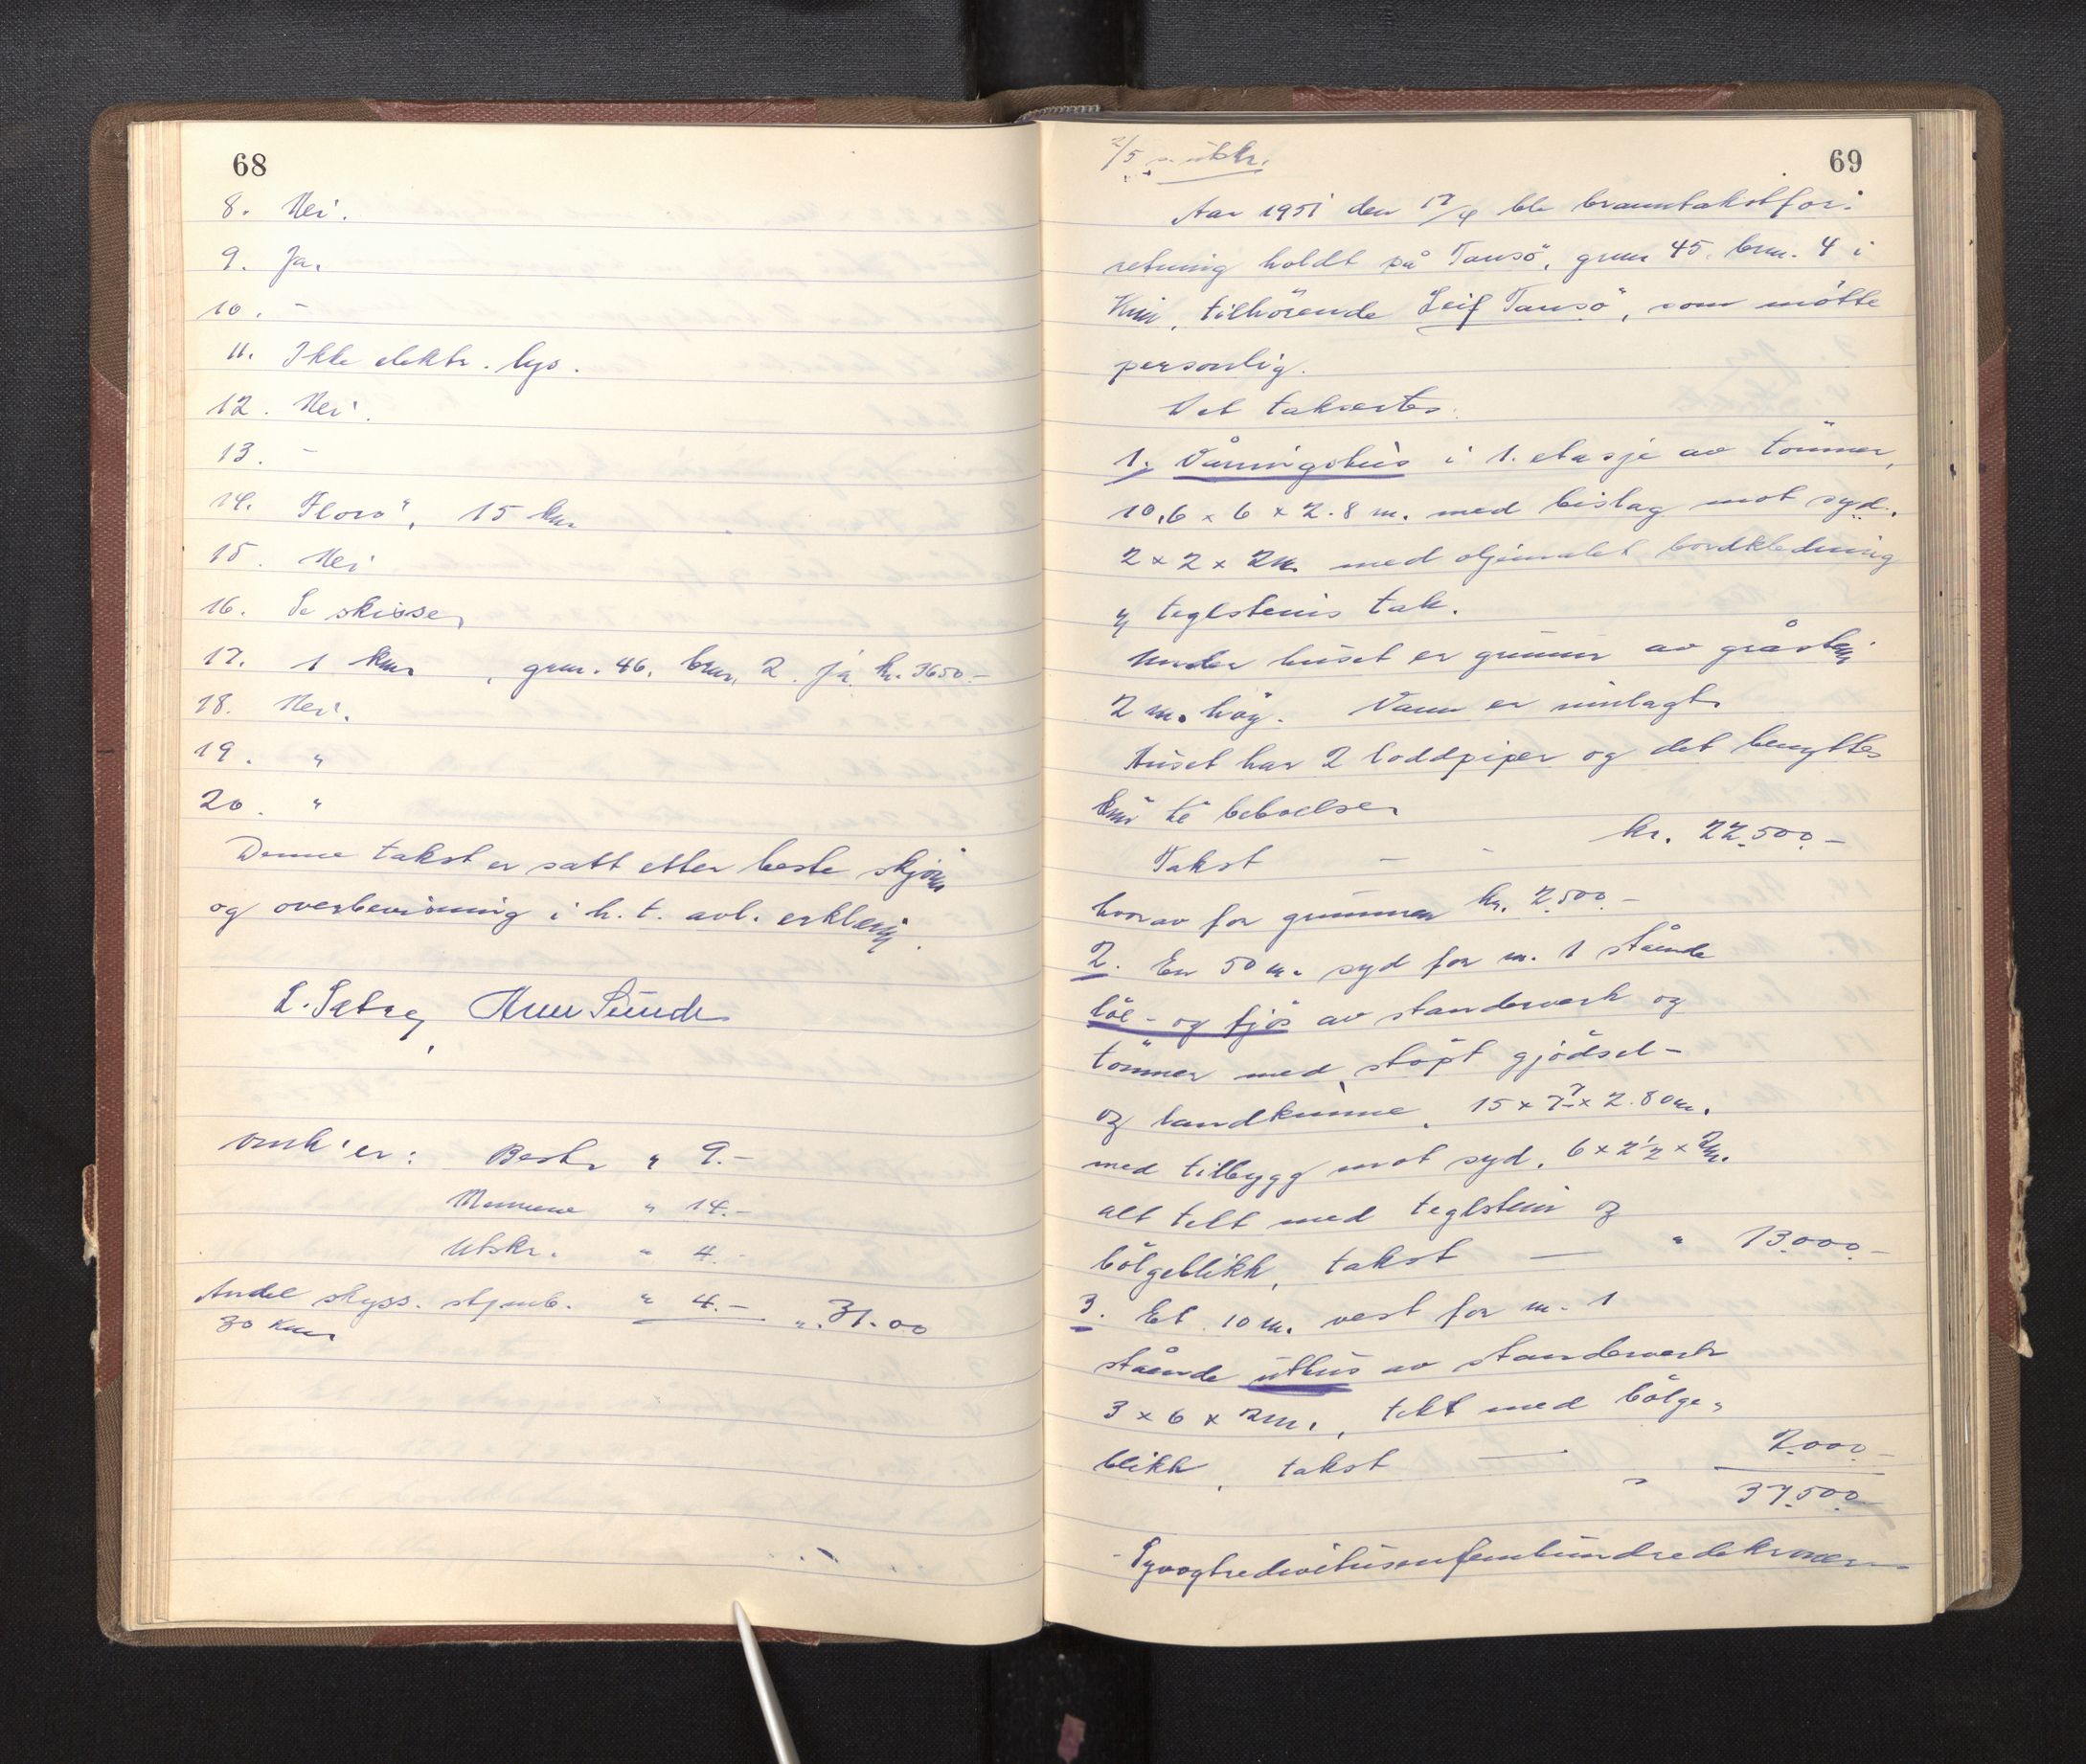 68
8. Nei.
9. Ja.
10. -
11. Ikke elektr. lys.
12. Nei.
13. -
14. Florö, 15 km
15. Nei
16. Se skisse,
17. 1 km , grnr. 46, brnr. 2. ja kr. 3650.-
18. Nei.
19. "
20. "
Denne takst er satt etter beste skjönn
og overbevisning i h. t. avl. erklæring.
L. Sætre, Sunde
Omk'er: Bestr " 9.-
Mennene " 14.-
Utskr. " 4.-
Andel skyss. " 4.- ". 31.00
30 Km
69
2/5 utskr.
Aar 1951 den 17/4 ble branntakstfor:
retning holdt på Tansö, grnr 45, brnr. 4 i
Kinn, tilhörende Leif Tansö, som mötte
personlig.
Det takseres:
1. Våningshus i 1. etasje av tömmer,
10,6 x 6 x 2.8 m. med bislag mot syd.
2 x 2 x 2 m. med oljemalet bordkledning
og teglsteins tak.
Under huset er grunnmur av gråstein
2 m. höy. Vann er innlagt.
Huset har 2 loddpiper og det benyttes
kun til beboelse.
Takst - - kr. 22.500.-
hvorav for grunnmur kr. 2.500.-
2. En 50 m. syd for nr. 1 stående
löe- og fjös av standerverk og
tömmer med stöpt gjödsel-
og landkumme, 15 x 7 x 2.80 m.
med tilbygg mot syd, 6 x 2½ x 2 m.
alt tekt med teglstein og
bölgeblikk, takst — " 13.000.-
3. Et 10 m. vest for nr. 1
stående uthus av standerverk
3 x 6 x 2 m., tekt med bölge-
blikk, takst — 2.000.-
" 37.500
Syvogtredivetusenfemhundredekroner